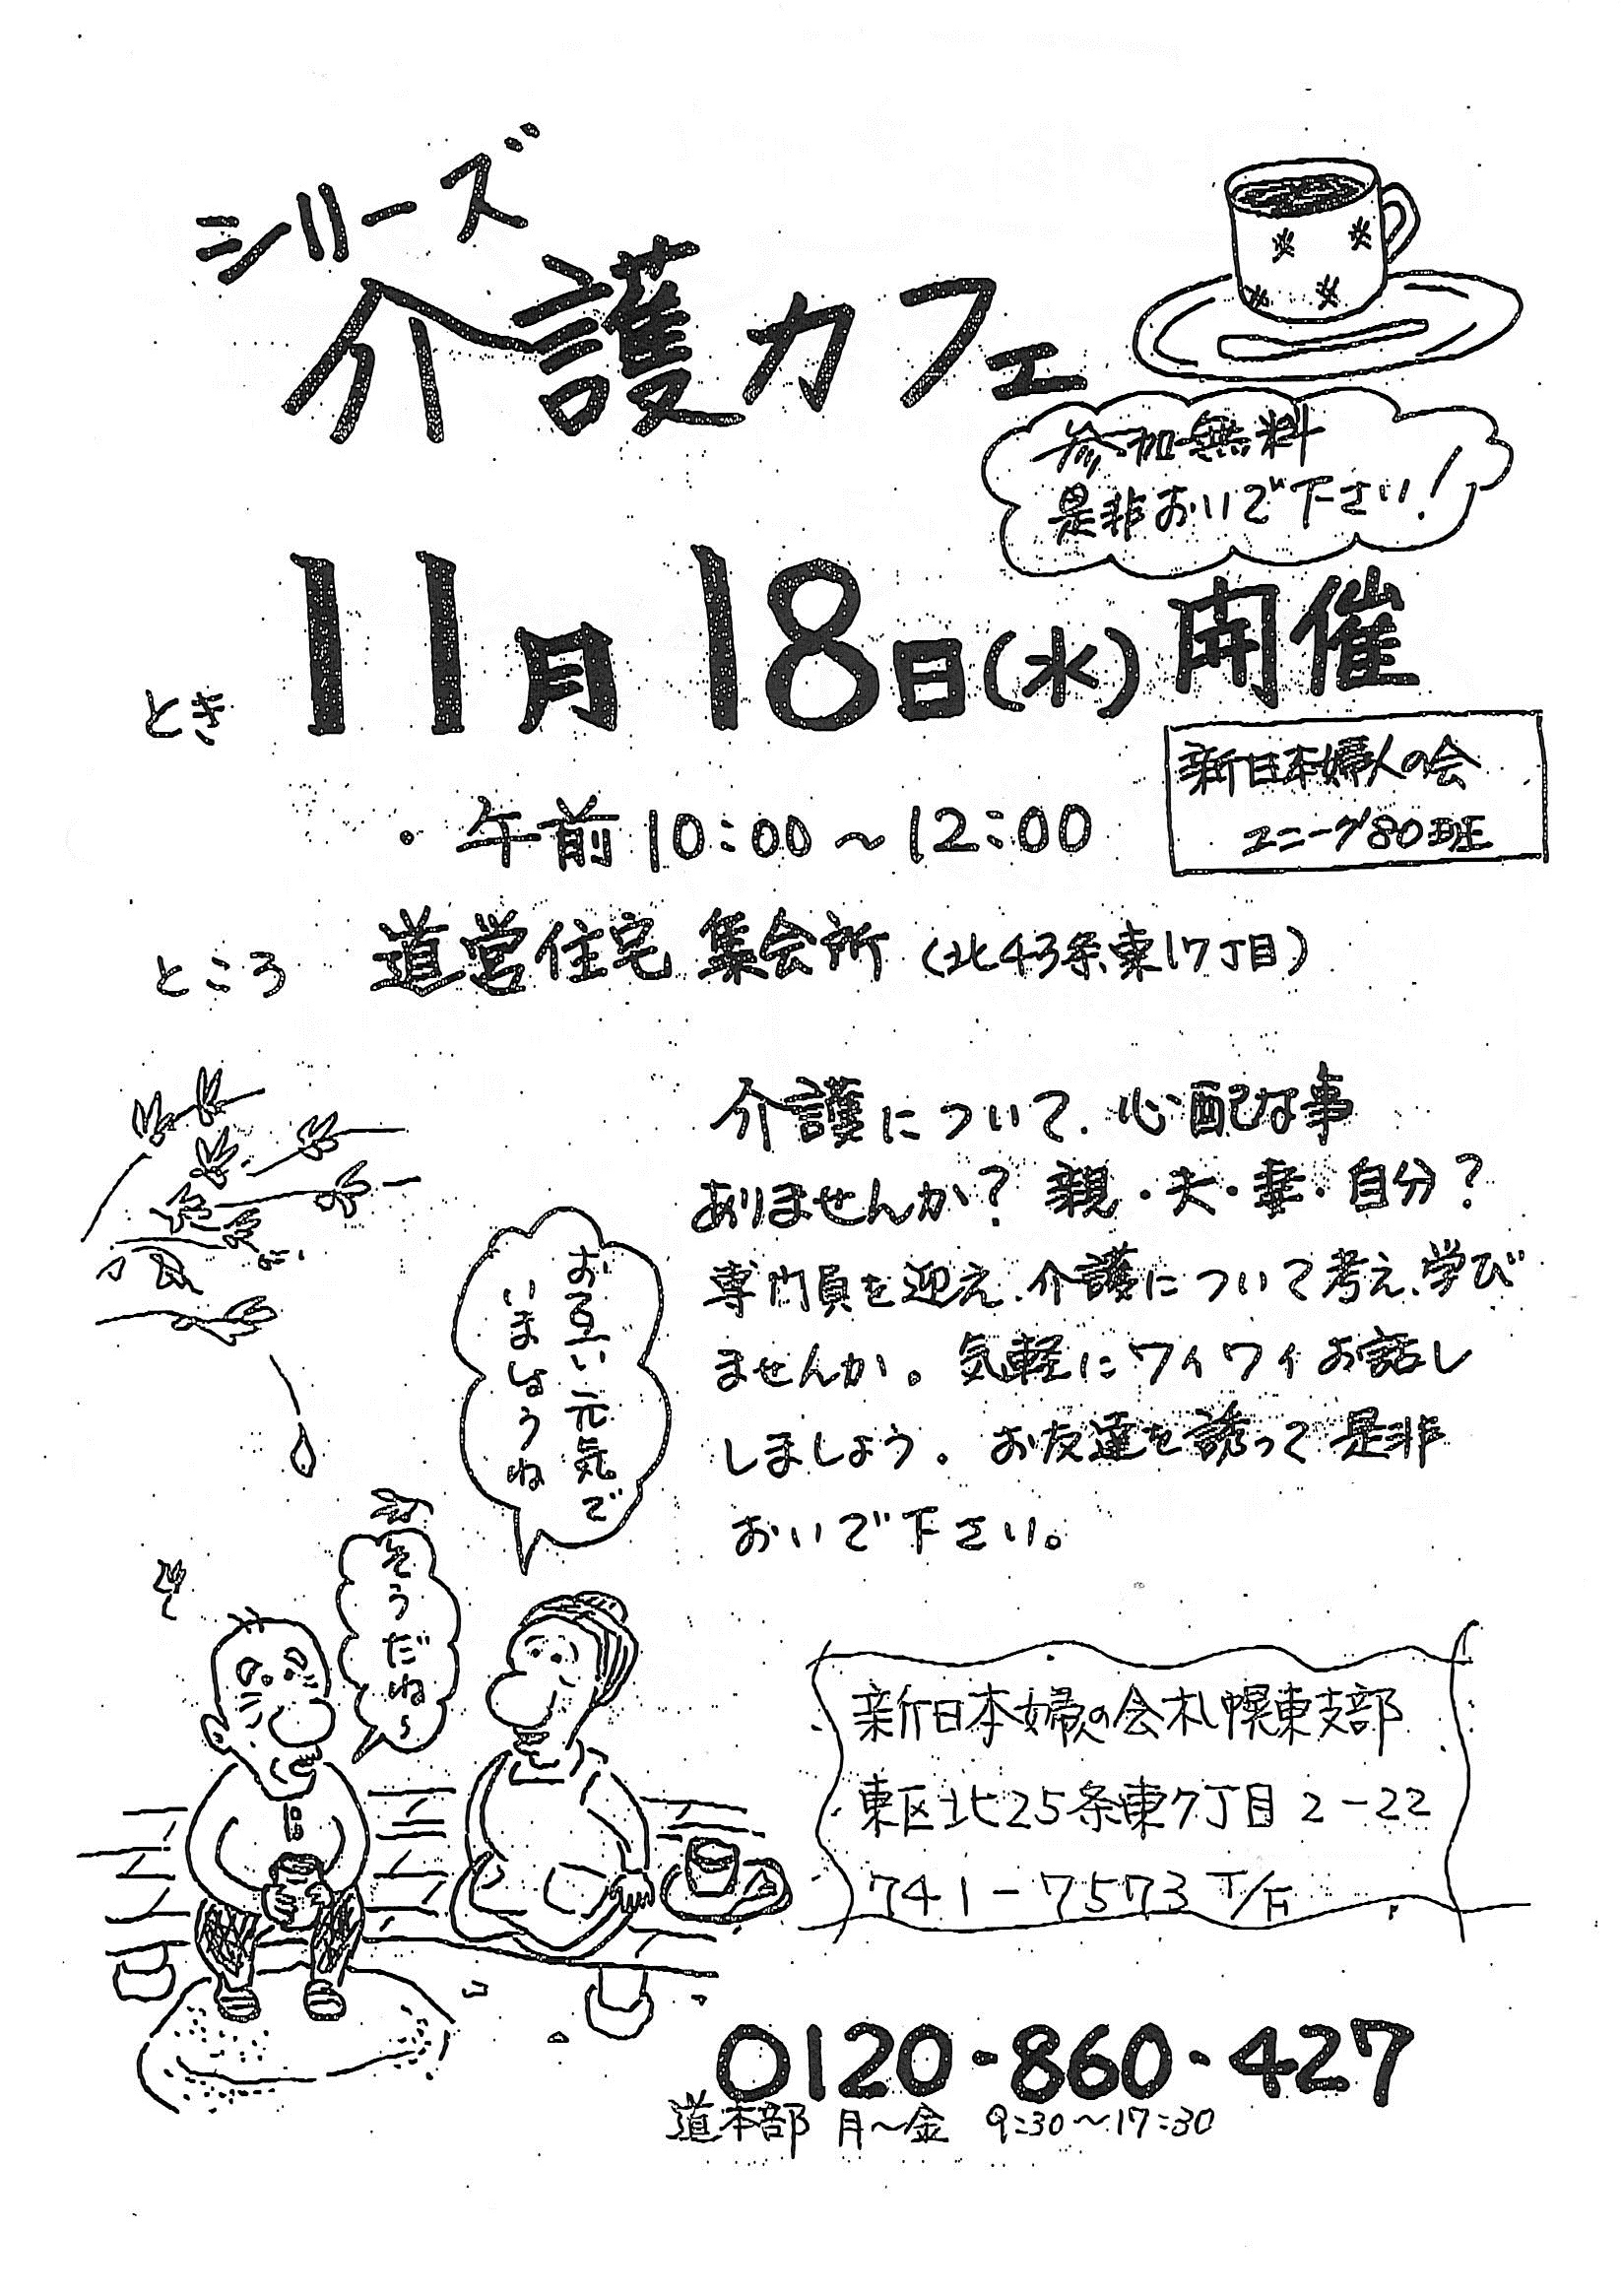 シリーズ
介護カフェ
参加無料
是非おいで下さい!
とき 11月18日(水)開催
新日本婦人の会
ユニーク80班
・午前10:00～12:00
ところ 道営住宅 集会所 (北43条東17丁目)
介護について、心配な事
ありませんか? 親・夫・妻・自分?
専門員を迎え、介護について考え、学び
ませんか。気軽にワイワイお話し
しましょう。お友達を誘って是非
おいで下さい。
お互い元気で
いましょうね
そうだね～
新日本婦人の会札幌東支部
東区北25条東7丁目2-22
741-7573 T/F
0120-860-427
道本部 月～金 9:30～17:30